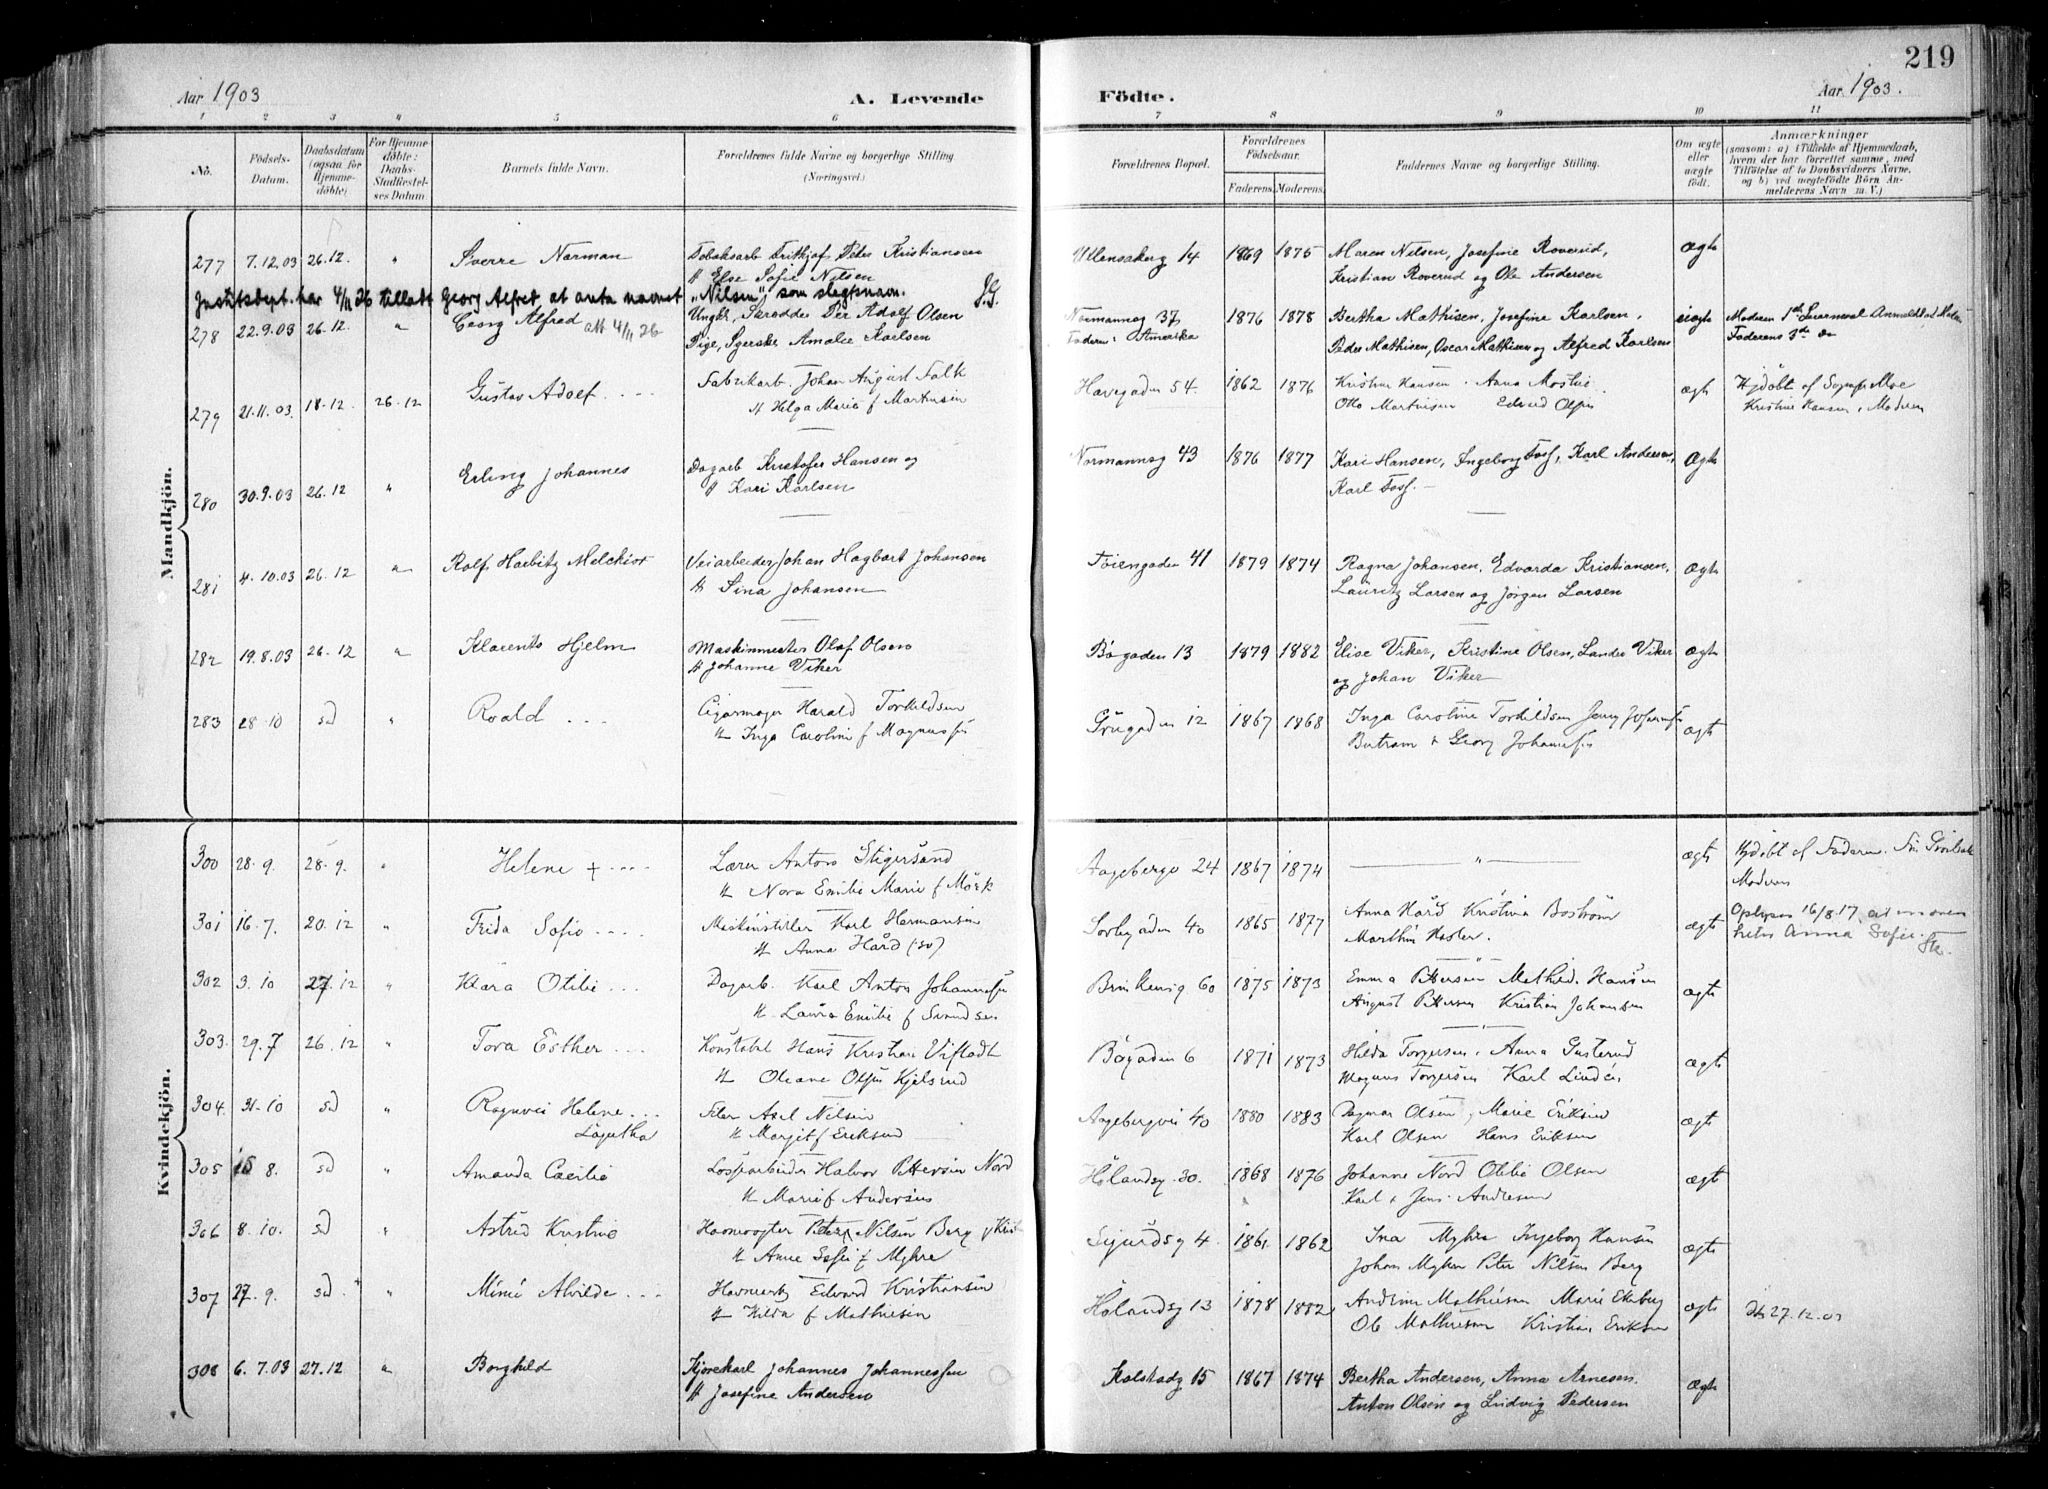 219
Aar 1903
A. Levende
Födte.
Aar 1903.
1 2 3 4 5 6 7 8 9 10 11
No.
Födsels-Datum.
Daabsdatum (ogsaa for Hjemmedöbte)
For Hjemmedöbte: Daabs-Stadfæstelses Datum
Barnets fulde Navn.
Forældrenes fulde Navne og borgerlige Stilling
(Næringsvei.)
Forældrenes Bopæl.
Forældrenes Födselsaar.
Faderens. Moderens.
Faddernes Navne og borgerlige Stilling.
Om ægte eller uægte födt.
Anmærkninger
(saasom: a) i Tilfælde af Hjemmedaab,
hvem der har forrettet samme, med
Tilföielse af to Daabsvidners Navne,
og b) ved uægtefödte Börn An-
melderens Navn m. V.)
Mandkjön.
277 7.12.03 26.12. " Sverre Norman Tobaksarb Frithjof Peder Kristiansen Ullensakerg 14 1869 1875 Maren Nilsen, Josefine Roverud, ægte
H Else Sofie Nilsen Kristian Roverud og Ole Andersen
Justitsdept. har 4/11 26 tilladt Georg Alfred, at anta navnet "Nilsen" som slegtsnavn.
278 22.9.03 26.12. " Georg Alfred att 4/11 26 Ungkr, Skrædder Per Adolf Olsen Normannsg 37 1876 1878 Bertha Mathisen, Josefine Karlsen, uægte Moderen 1ste
Pige, Syerske Amalie Karlsen Faderen: Amerika Peder Mathisen, Oscar Mathisen og Alfred Karlsen Faderens 3de do
279 21.11.03. 18.12. 26.12 Gustav Adolf Fabrikarb. Johan August Falk Havegaden 54. 1862 1876 Kristine Hansen. Anna Mostue ægte Hjdöbt af
H Helga Marie f Martinsen Otto Martinsen Edvard Olsen Kristine Hansen, Moderen
280 30.9.03 26.12 " Erling Johannes Dagarb Kristofer Hansen og Normannsg 43 1876 1877 Kari Hansen, Ingeborg Foss, Karl Andersen, ægte
H Kari Karlsen Karl Foss.
281 4.10.03 26.12 " Rolf Harbitz Melchior Veiarbeider Johan Hagbart Johansen Töiengaden 41 1879 1874 Ragna Johansen, Edvarda Kristiansen, ægte
H Sina Johansen Lauritz Larsen og Jörgen Larsen
282 19.8.03 26.12 " Klarents Hjelm Maskinmester Olaf Olsen Bögaden 13 1879 1882 Elise Viker, Kristine Olsen, Lander Viker ægte
H Johanne Viker og Johan Viker
283 28.10 sd " Roald Cigarmager Harald Torkildsen Grügaden 12 1867 1868 Inga Caroline Torkildsen Jenny ægte
H Inga Caroline f Magnussen Georg Johannessen
Kvindekjön.
300 28.9. 28.9. " Helene + Lærer Anton Stigersand Aagebergv 24 1867 1874 " ægte Hjdöbt af Faderen.
H Nora Emilie Marie f Mörk Moderen
301 16.7. 20.12 " Frida Sofie Maskinstiller Karl Hermansen Sorbygaden 40 1865 1877 Anna Hård Kristina Boström ægte Oplyses 16/8.17, at moren
H Anna Hård (sv) heter Anna Sofie.
302 3.10 27.12 " Klara Otilie Dagarb. Karl Anton Johannessen Brinkensg 60 1875 1873 Emma Pettersen Mathild. Hansen ægte
H Laura Emilie f Svendsen August Pettersen Kristian Johansen
303. 29.7 26.12 " Tora Esther Konstabel Hans Kristian Vifladt Bögaden 6 1871 1873 Hilda Torgersen. Anna Gusterud ægte
H Oleane Olsen Kjelsrud Magnus Torgersen Karl Lindén
304. 31.10 sd " Ragnvei Helene Filer Axel Nilsen Aagebergvei 40 1880 1883 Dagmar Olsen, Marie Eriksen ægte
Lagutha H Margit f Eriksen Karl Olsen Hans Eriksen
305 15.8. sd " Amanda Cecilie Lossearbeider Halvor Pettersen Nord Hölandsg. 30. 1868 1876 Johanne Nord Otilie Olsen ægte
H Marie f Andersen Karl & Jens Andresen
306 8.10. sd " Astrid Kristine Havnevogter Peter Nilsen Berg Sigurdsg 4. 1861 1862 Ina Myhre Ingeborg Hansen ægte
H Anne Sofie f Myhre Johan Myhre Peter Nilsen Berg
307 27.9. sd. " Mimi Alvilde Havnearb Edvard Kristiansen Hölandsg 13 1878 1882 Andrine Mathiesen Marie Ekeberg ægte 27.12.03
H Hilda f Mathiesen Ole Mathiesen Kristian Eriksen
308 6.7.03 27.12 " Borghild Kjörekarl Johannes Johannessen Kolstadg 15 1867 1874 Bertha Andersen, Anna Arnesen. ægte
H Josefine Andersen Anton Olsen og Ludvig Pedersen